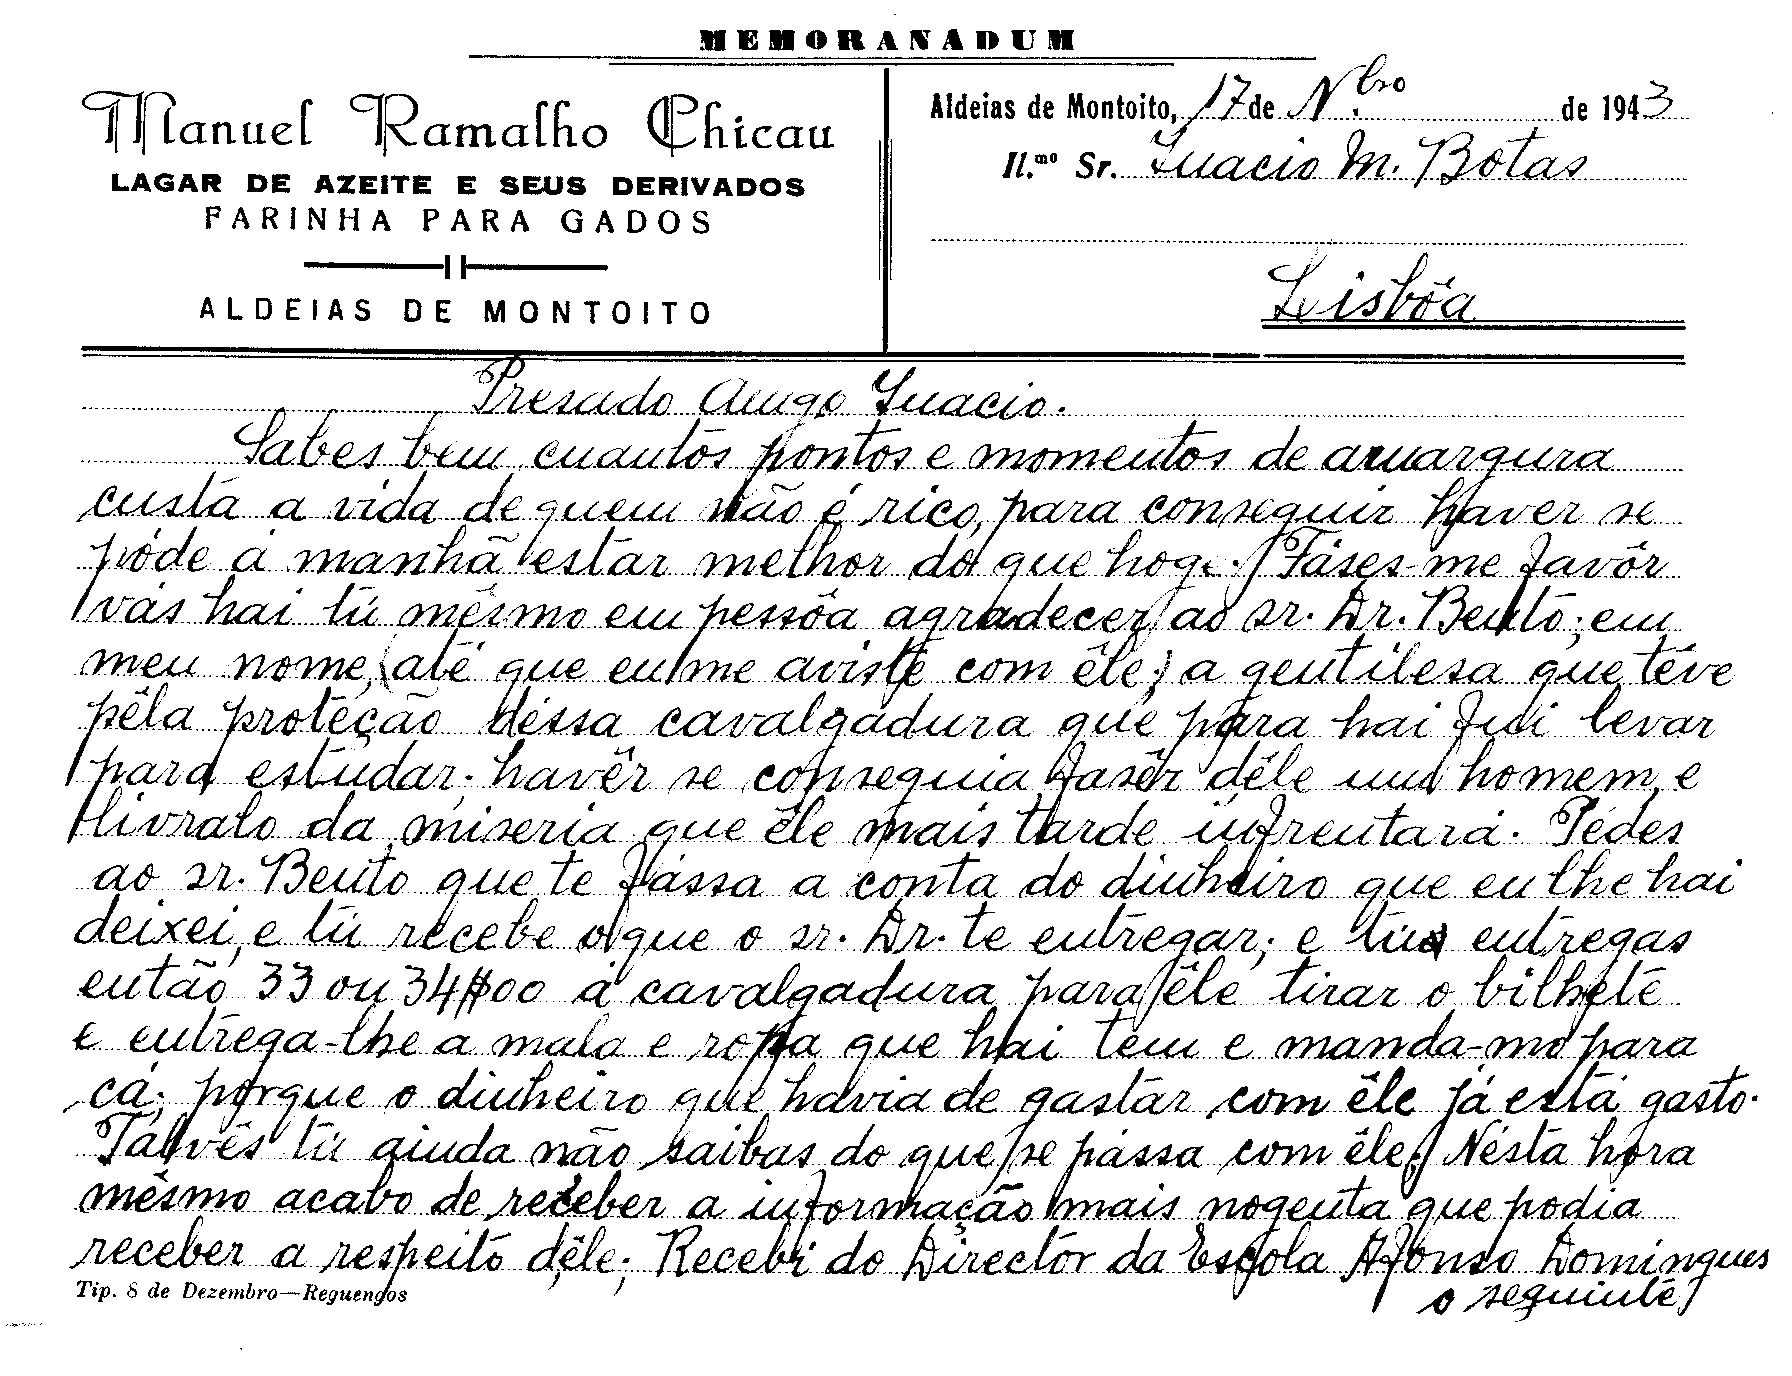 MEMORANADUM
Manuel Ramalho Chicau
LAGAR DE AZEITE E SEUS DERIVADOS
FARINHA PARA GADOS
ALDEIAS DE MONTOITO
Aldeias de Montoito, 17 de N.bro de 1943
Il.mo Sr. Inacio M. Botas
Lisbôa
Presado Amigo Inacio.
Sabes bem cuantos pontos e momentos de amargura
custa a vida de quem não é rico, para conseguir haver se
póde á manhã estar melhor do que hoge. Fáses-me favôr
vás hai tú mêsmo em pessôa agradecer ao sr. Dr. Bento; em
meu nome, (até que eu me aviste com êle;) a gentilesa que têve
pêla proteção déssa cavalgadura que para hai fui levar
para estudar; havêr se conseguia fasêr dêle um homem, e
livralo da miseria que êle mais tarde infrentará. Pédes
ao sr. Bento que te fássa a conta do dinheiro que eu lhe hai
deixei, e tú recebe o que o sr. Dr. te entregar; e tú entregas
então 33 ou 34$00 á cavalgadura para êle tirar o bilhete
e entrega-lhe a mala e ropa que hai tem e manda-mo para
cá; porque o dinheiro que havia de gastár com êle já está gasto.
Talvês tú ainda não saibas do que se pássa com êle. Nésta hora
mêsmo acabo de receber a informação mais nogenta que podia
receber a respeito dêle; Recebi do Director da Escola Afonso Domingues
o seguinte
Tip. 8 de Dezembro—Reguengos